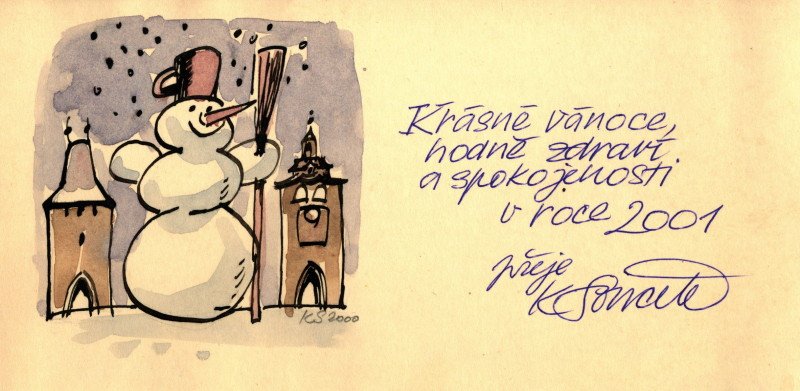 Krásné vánoce,
hodně zdraví
a spokojenosti
v roce 2001
přeje
KS 2000